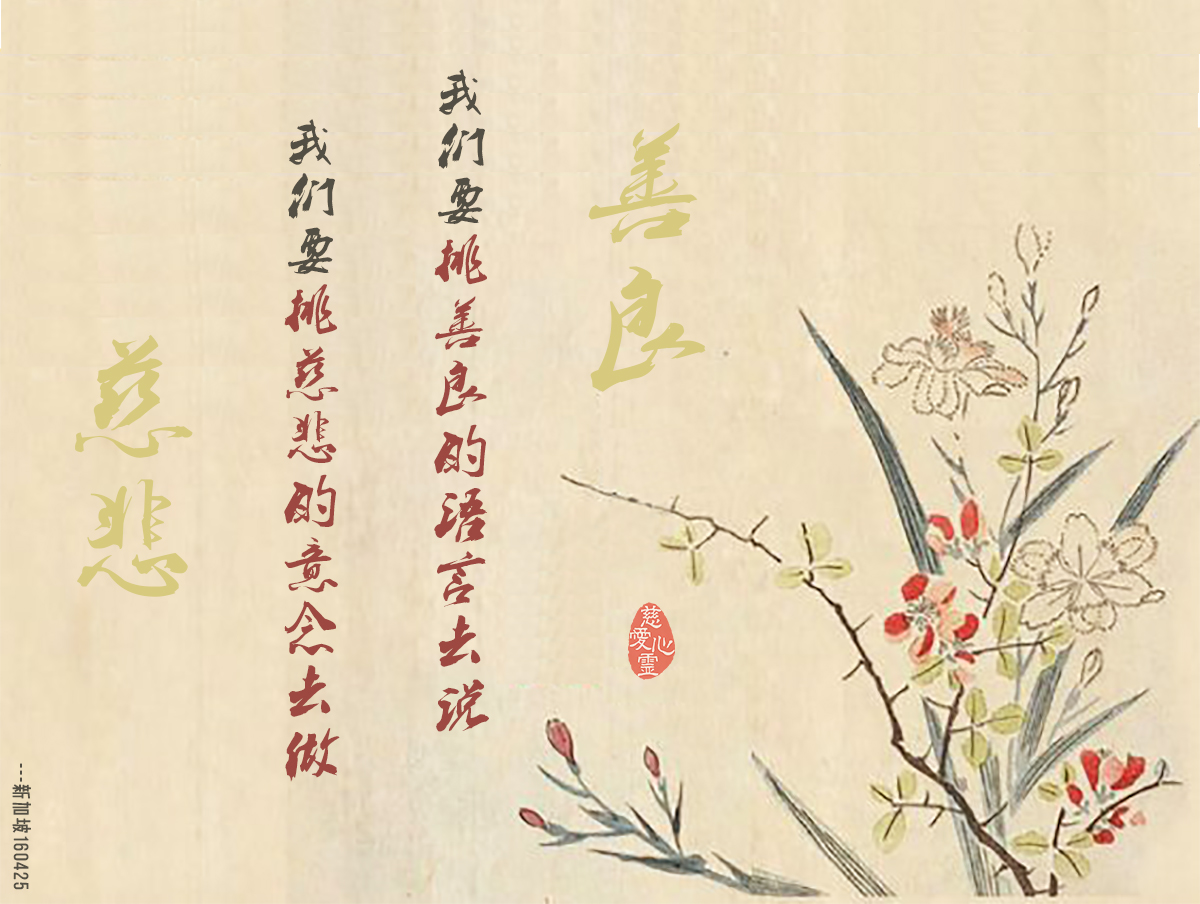 善良
我们要挑善良的语言去说
我们要挑慈悲的意念去做
慈悲
慈愛心靈
---新加坡160425